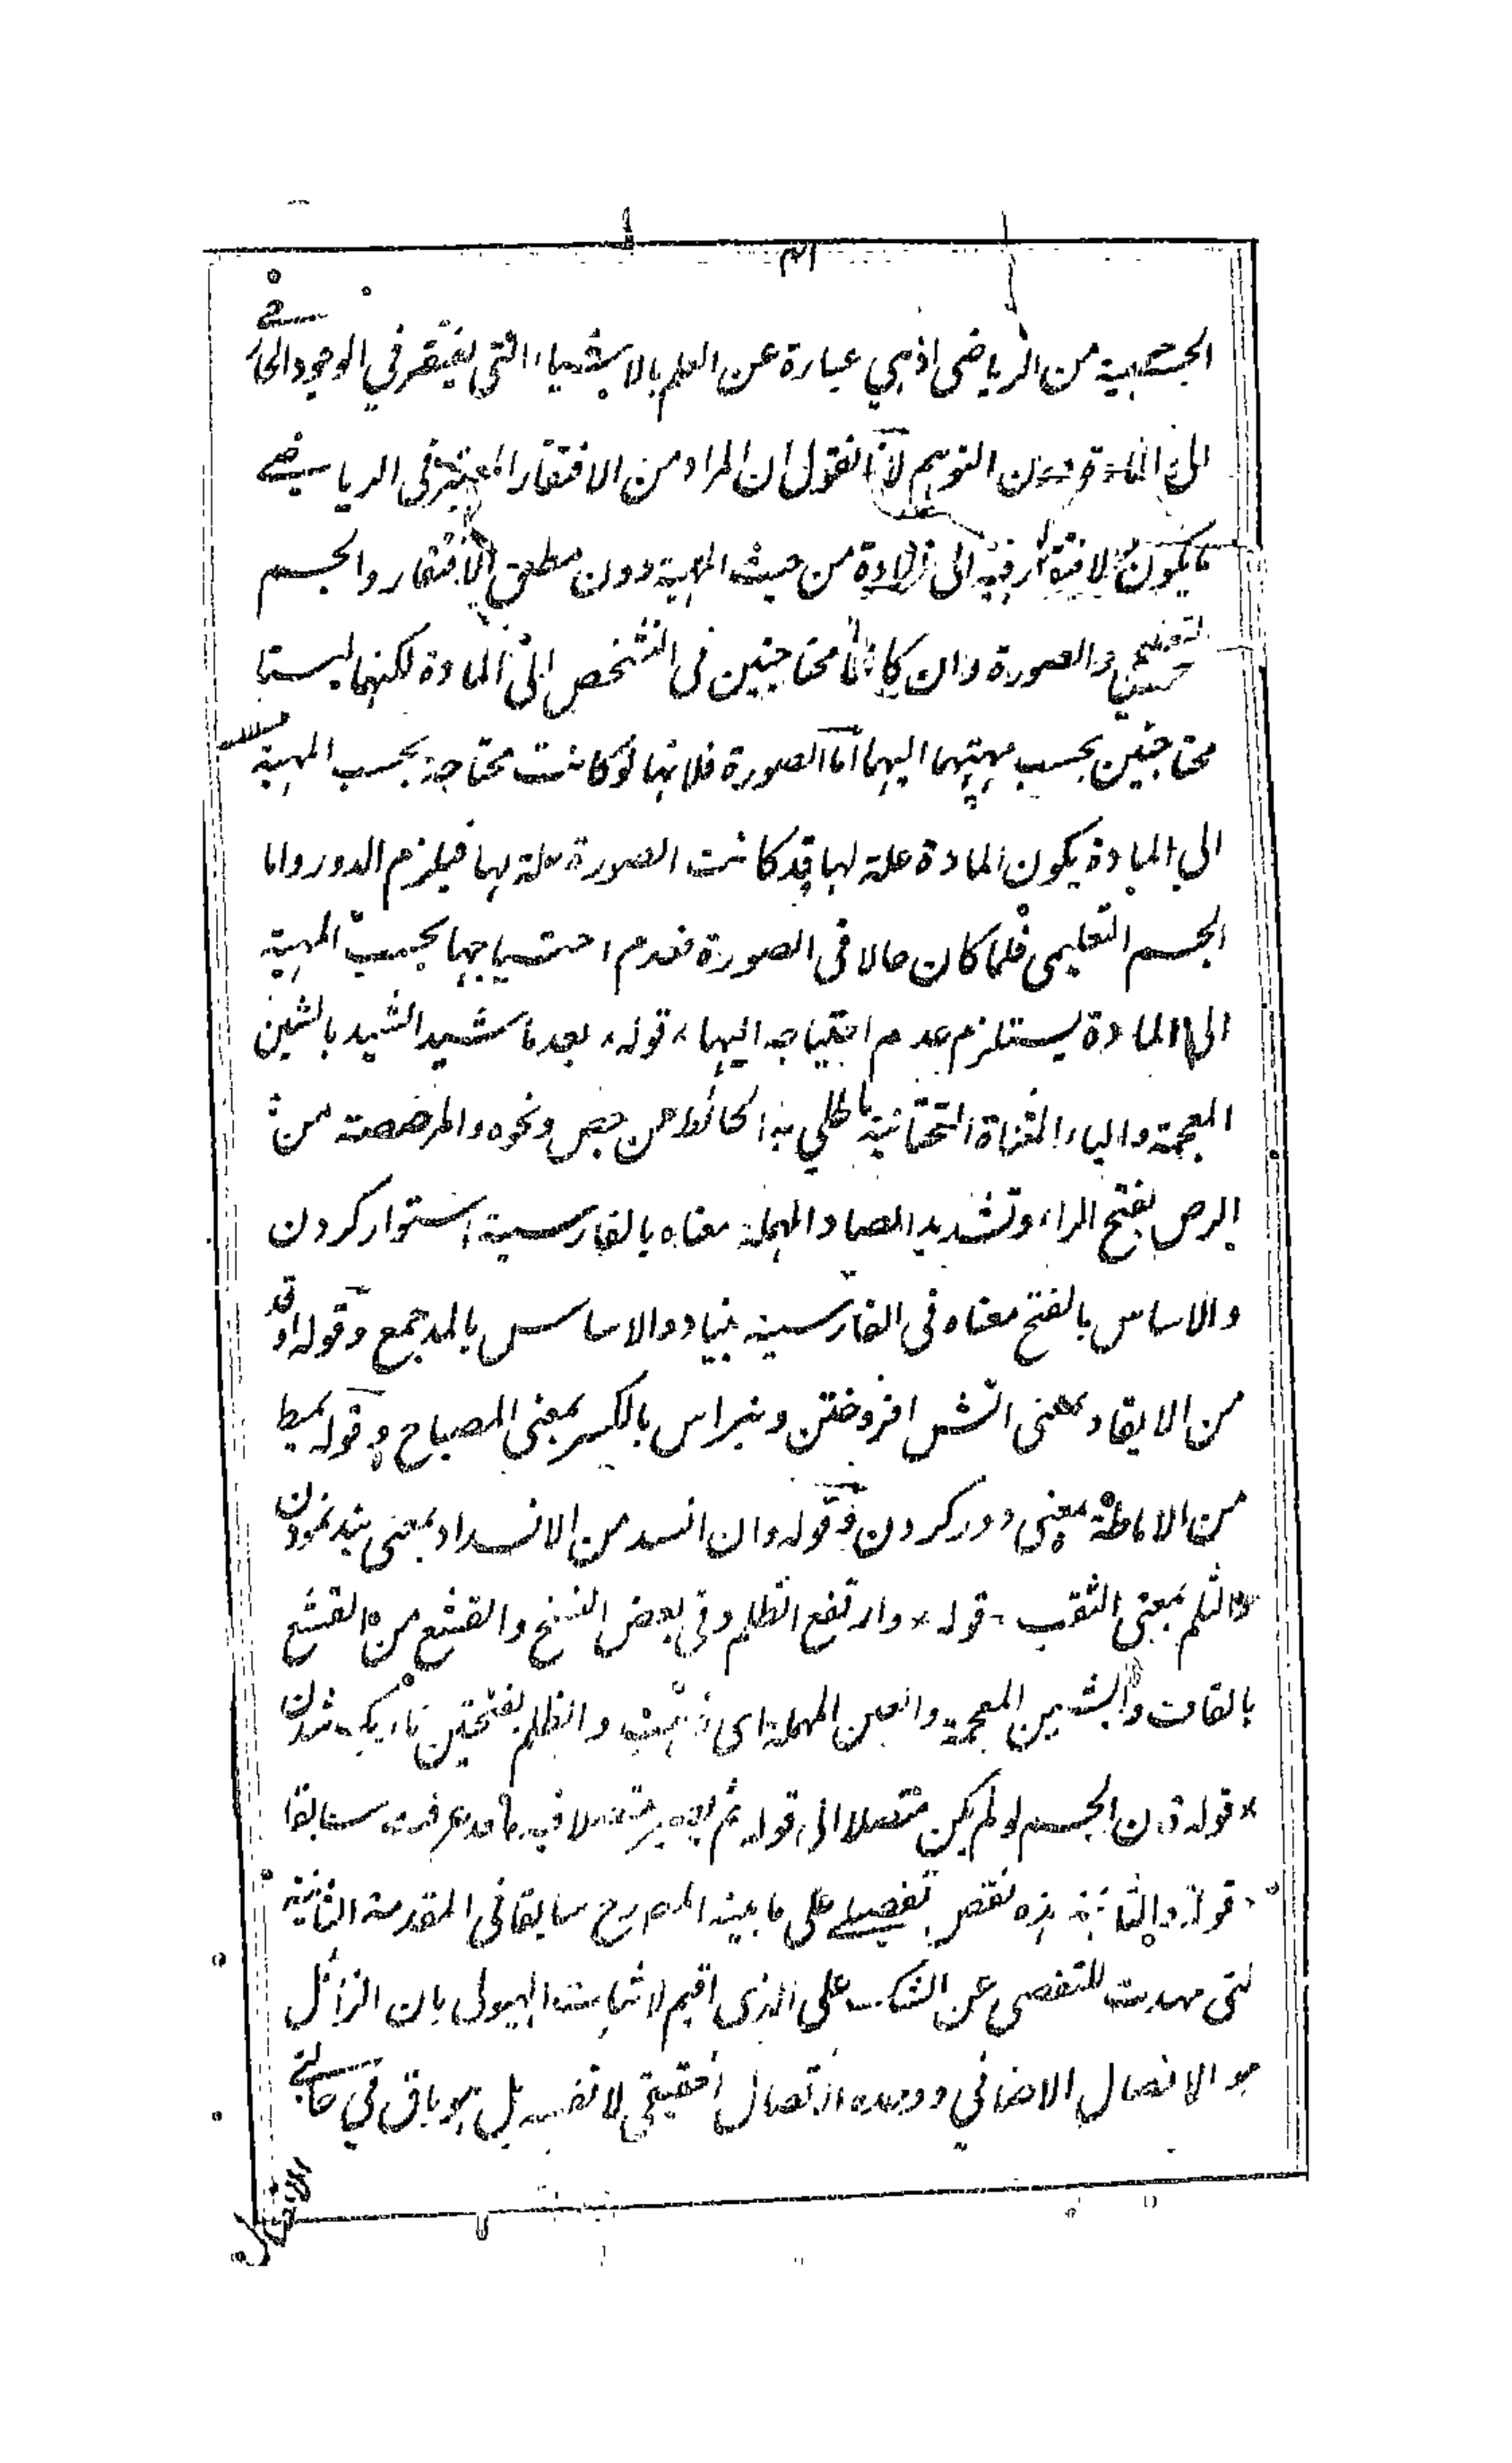 الجسمية من الرياضى اذ هي عبارة عن العلم بالاشياء التى يفتقر في الوجود الخارجي
الى المادة دون التوهم لانا نقول ان المراد من الافتقار المعتبر فى الرياضي
ما يكون الافتقار فيه الى المادة من حيث المهية دون مطلق الافتقار والجسم
التعليمي والصورة وان كانا محتاجين فى التشخص الى المادة لكنهما ليستا
محتاجين بحسب مهيتهما اليها اما الصورة فلانها لو كانت محتاجة بحسب المهية
الى المادة يكون المادة علة لها قد كانت الصورة علة لها فيلزم الدور واما
الجسم التعليمى فلما كان حالا فى الصورة فعدم احتياجها بحسب المهية
الى المادة يستلزم عدم احتياجه اليها قوله بعد ما شيد الشيد بالشين
المعجمة والياء المثناة التحتانية ما طلي به الحائط من جص ونحوه والمرصصة من
الرص بفتح الراء وتشديد الصاد المهملة معناه بالفارسية استوار كردن
والاساس بالفتح معناه فى الفارسية بنياد والاساس بالمد جمع وقوله اوقد
من الايقاد بمعنى اتش افروختن ونبراس بالكسر بمعنى المصباح وقوله يميط
من الاماطة بمعنى دور كردن وقوله وان انسد من الانسداد بمعنى بند نمودن
والثلم بمعنى الثقب قوله وارتفع الظلم وفى بعض النسخ والقشع من القشع
بالقاف والشين المعجمة والعين المهملة اى ذهبت والظلم بفتحتين تاريك شدن
قوله دن الجسم لو لم يكن متصلا الى قوله ثم يصير متصلا فيه ما قد عرفت سابقا
قوله والثانية هذه نقض تفصيلے على ما بينه المصرح سابقا فى المقدمة الثانية
لتى مهدت للتفصى عن الشك على الذى اقيم لاثبات الهيولى بان الزائل
هو الاتصال الاضافي ووحده الاتصال الحقيقى لا نفسه بل هو باق في حالتي